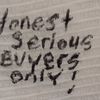 Honest
Serious
BUYERS
ONLY!